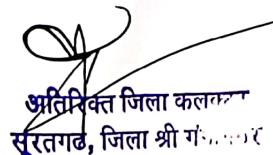 अतिरिक्त जिला कलक्टर
सूरतगढ, जिला श्री गं